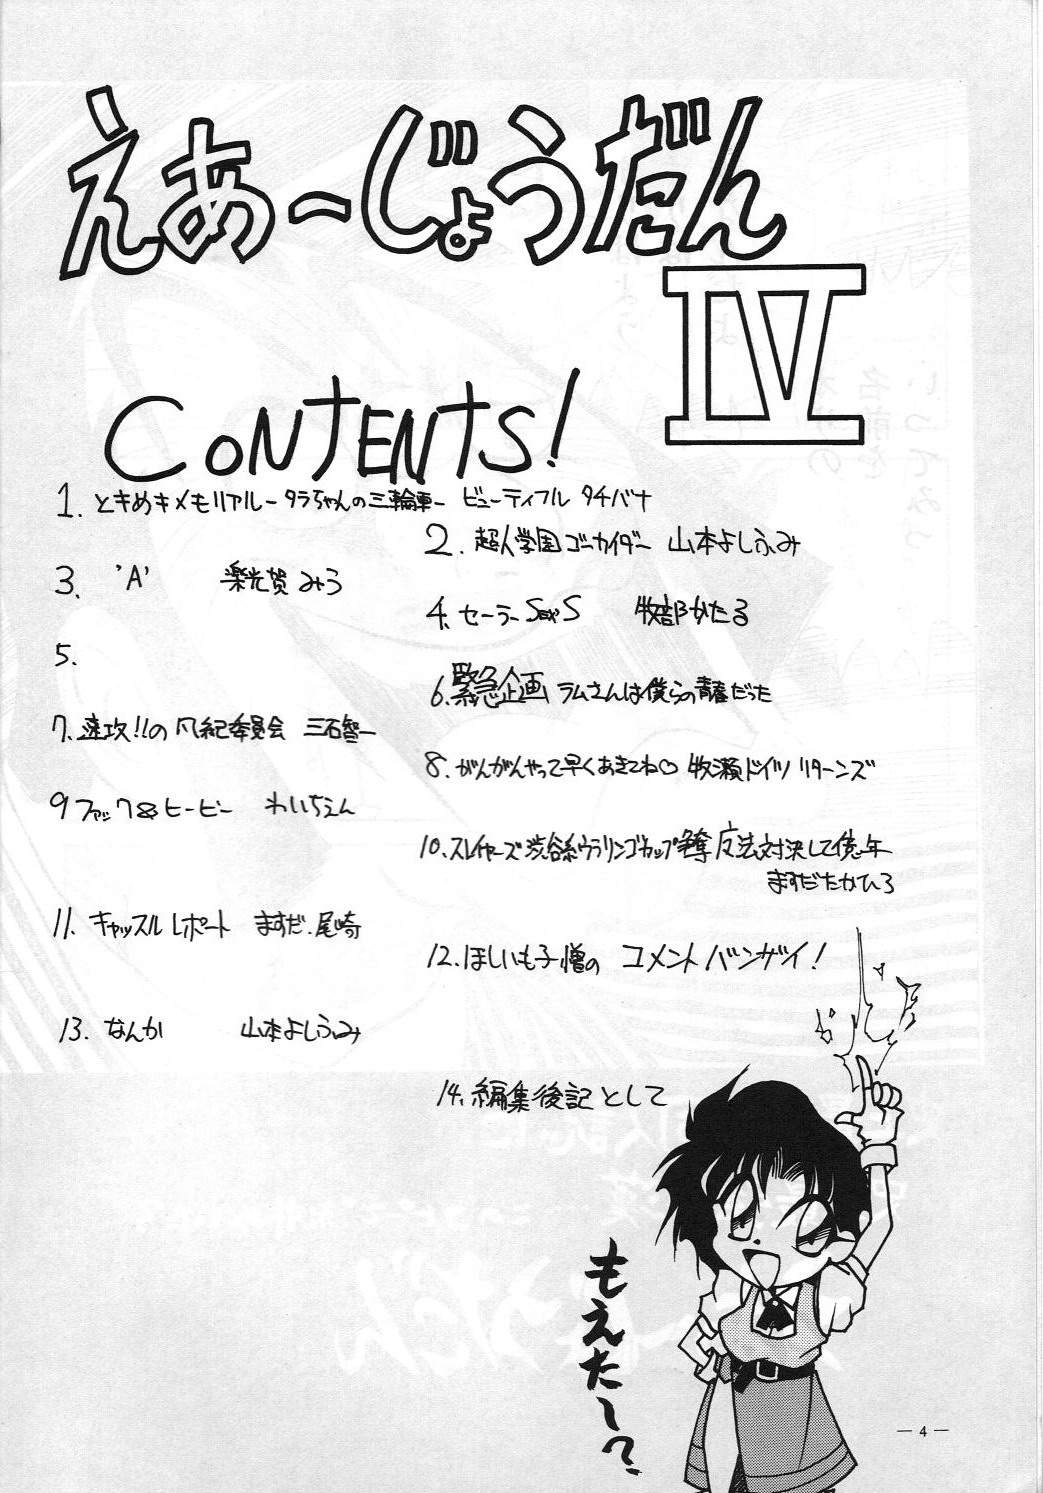 えあーじょうだん
IV
CONTENTS!
1. ときめきメモリアルータラちゃんの三輪車ー ビューティフル タチバナ
2. 超人学園ゴーカイダー 山本よしふみ
3. 'A' 楽光賀みう
4. セーラーSEXS 牧部かたる
5.
6. 緊急企画 ラムさんは僕らの青春だった
7. 速攻!!の風紀委員会 三石智一
8. がんがんやって早くあきてね♡ 牧瀬ドイツ リターンズ
9 ファック&ヒービー わいちえん
10. スレイヤーズ渋谷系ウラリンゴカップ争奪 反法対決して億年
ますだたかひろ
11. キャッスルレポート ますだ.尾崎
12. ほしいも子僧の コメントバンザイ!
13. なんか 山本よしふみ
14. 編集後記として
もえたー?
— 4 —